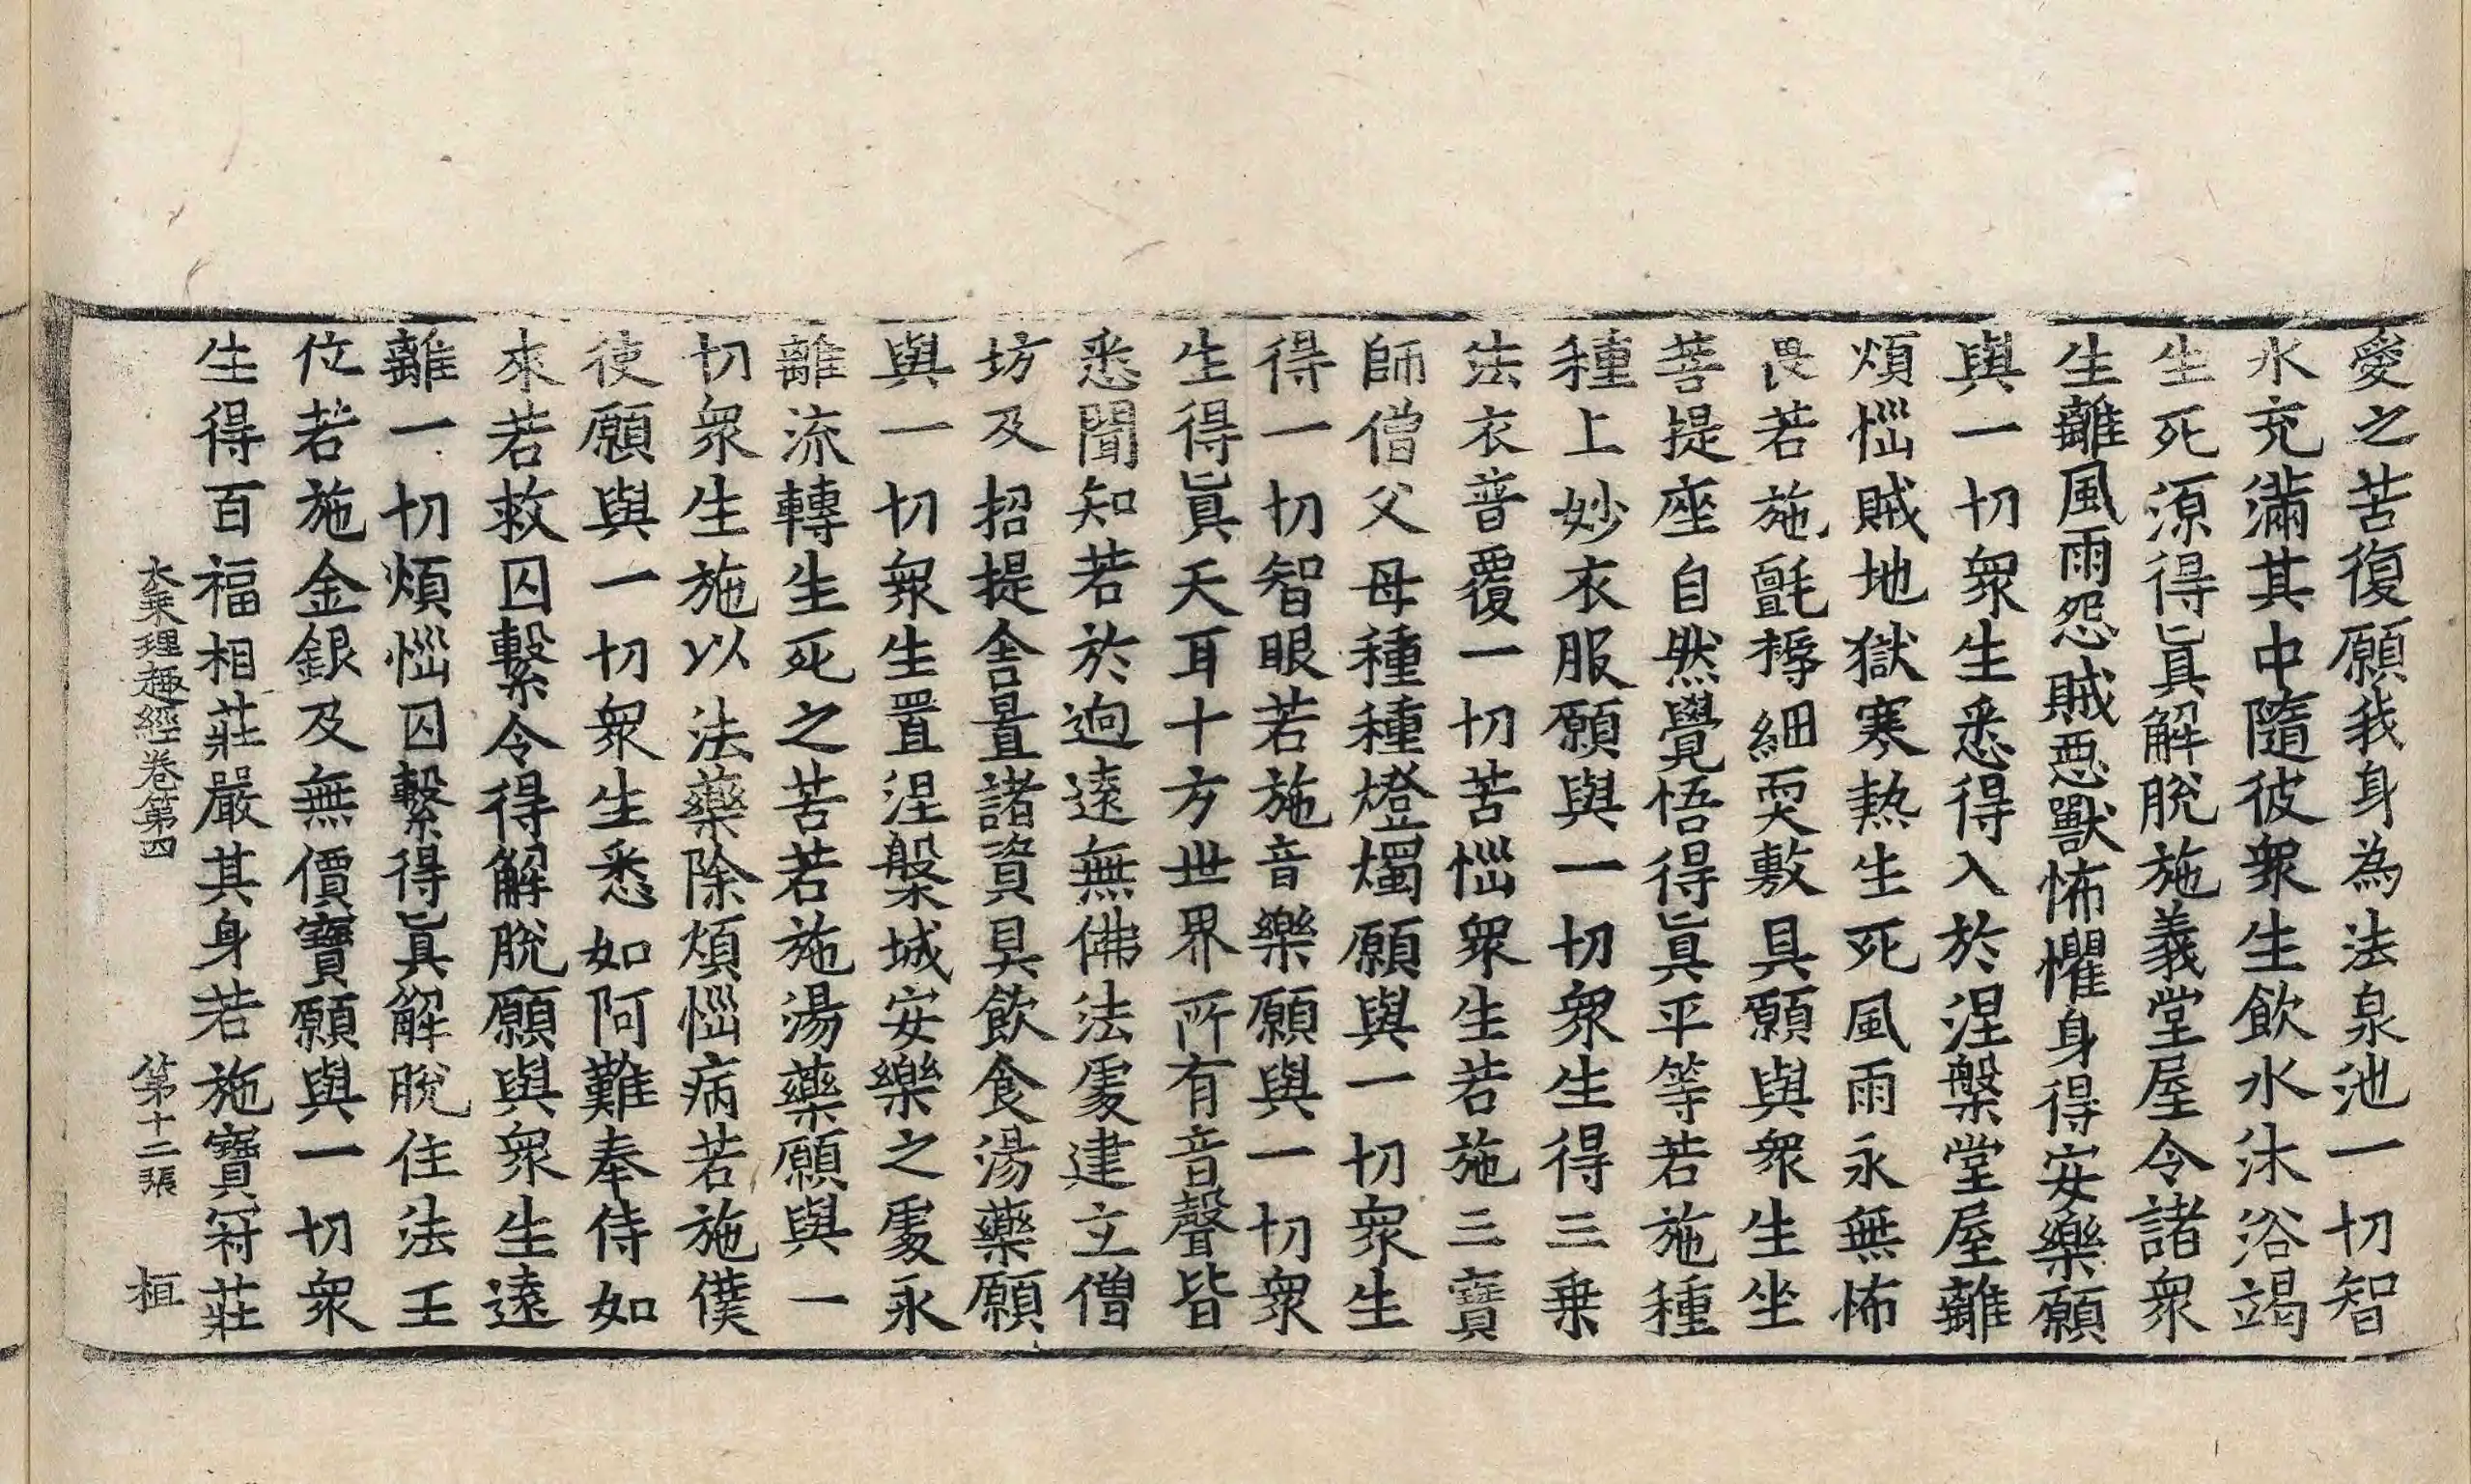 愛之苦復願我身為法泉池一切智
水充滿其中隨彼衆生飲水沐浴竭
生死源得眞解脫施義堂屋令諸衆
生離風雨怨賊惡獸怖懼身得安樂願
與一切衆生悉得入於涅槃堂屋離
煩惱賊地獄寒熱生死風雨永無怖
畏若施氈褥細耎敷具願與衆生坐
菩提座自然覺悟得眞平等若施種
種上妙衣服願與一切衆生得三乗
法衣普覆一切苦惱衆生若施三寶
師僧父母種種燈燭願與一切衆生
得一切智眼若施音樂願與一切衆
生得眞天耳十方世界所有音聲皆
悉聞知若於逈遠無佛法處建立僧
坊及招提舍置諸資具飲食湯藥願
與一切衆生置涅槃城安樂之處永
離流轉生死之苦若施湯藥願與一
切衆生施以法藥除煩惱病若施僕
使願與一切衆生悉如阿難奉侍如
來若救囚繫令得解脫願與衆生遠
離一切煩惱囚繫得眞解脫住法王
位若施金銀及無價寶願與一切衆
生得百福相莊嚴其身若施寶冠莊
大乗理趣經卷第四 第十二張 桓